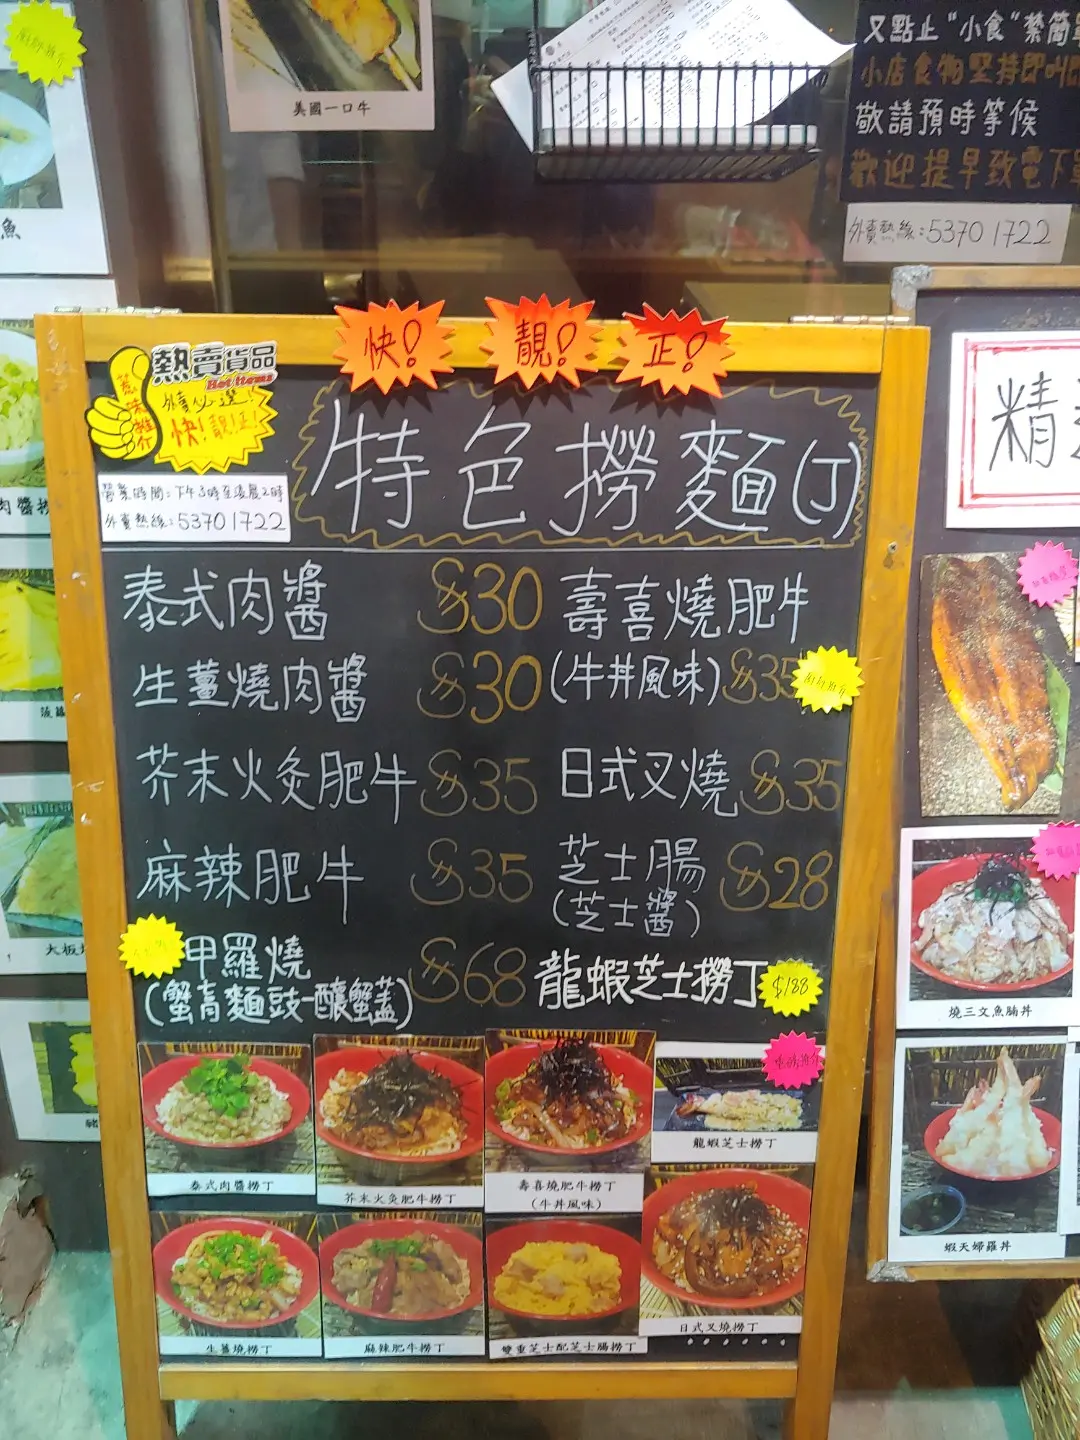 美國一口牛
又點止“小食”禁簡
小店食物堅持即叫
敬請預時等候
歡迎提早致電下
外賣熱線：5370 1722
魚
快！
靚！
正！
熱賣貨品
Hot Items
外賣必選！
快！靚！正！
營業時間：下午3時至凌晨2時
外賣熱線：5370 1722
特色撈麵(丁)
泰式肉醬 $30
生薑燒肉醬 $30
芥末火灸肥牛 $35
麻辣肥牛 $35
甲羅燒
(蟹膏麵豉-釀蟹蓋) $68
壽喜燒肥牛
(牛丼風味) $35
日式叉燒 $35
芝士腸
(芝士醬) $28
龍蝦芝士撈丁 $188
泰式肉醬撈丁
芥末火灸肥牛撈丁
壽喜燒肥牛撈丁
(牛丼風味)
龍蝦芝士撈丁
生薑燒撈丁
麻辣肥牛撈丁
雙重芝士配芝士腸撈丁
日式叉燒撈丁
肉醬撈
大板燒
精
燒三文魚腩丼
蝦天婦羅丼